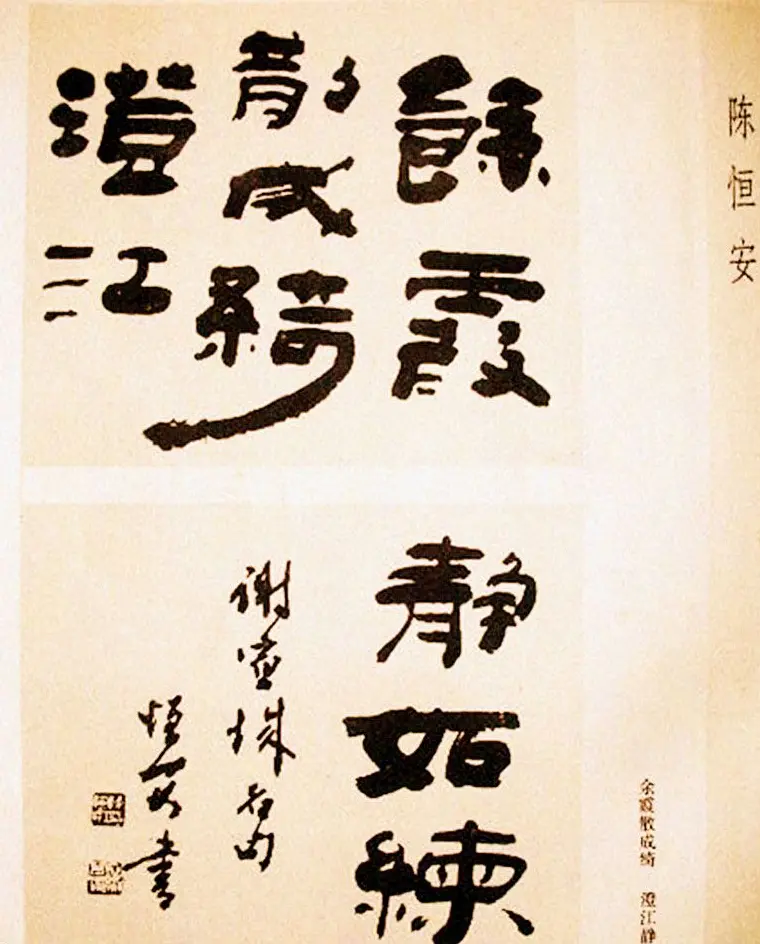 陈恒安
餘霞
散成綺
澄江
静如練
謝宣城名句
恒安書
余霞散成绮 澄江静